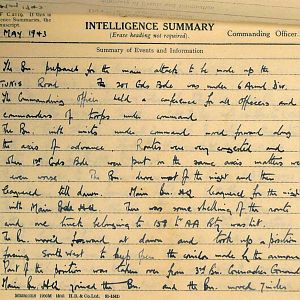 INTELLIGENCE SUMMARY
(Erase heading not required).
Commanding Officer
MAY 1943
Summary of Events and Information
The Bn. prepared for the main attack to be made up the
TUNIS Road. The 201 Gds Bde was under 6 Armd Div.
The Commanding Officer held a conference for all Officers and
commanders of troops under command.
The Bn. with units under command moved forward along
the axis of advance. Routes were very congested and
when 1st Gds Bde were put on the same axis matters were
even worse. The Bn. drove most of the night and then
leaguered till dawn. Main Bn. HQ leaguered for the night
with Main Bde HQ. There was some shelling of the route
and one truck belonging to 158 to AA Bty was hit.
The Bn. moved forward at dawn and took up a position
facing South West to keep open the corridor made by the armour
Part of the position was taken over from 3rd Bn. Grenadier Guards
Main Bn. HQ joined the Bn. and the Bn. moved 7 miles